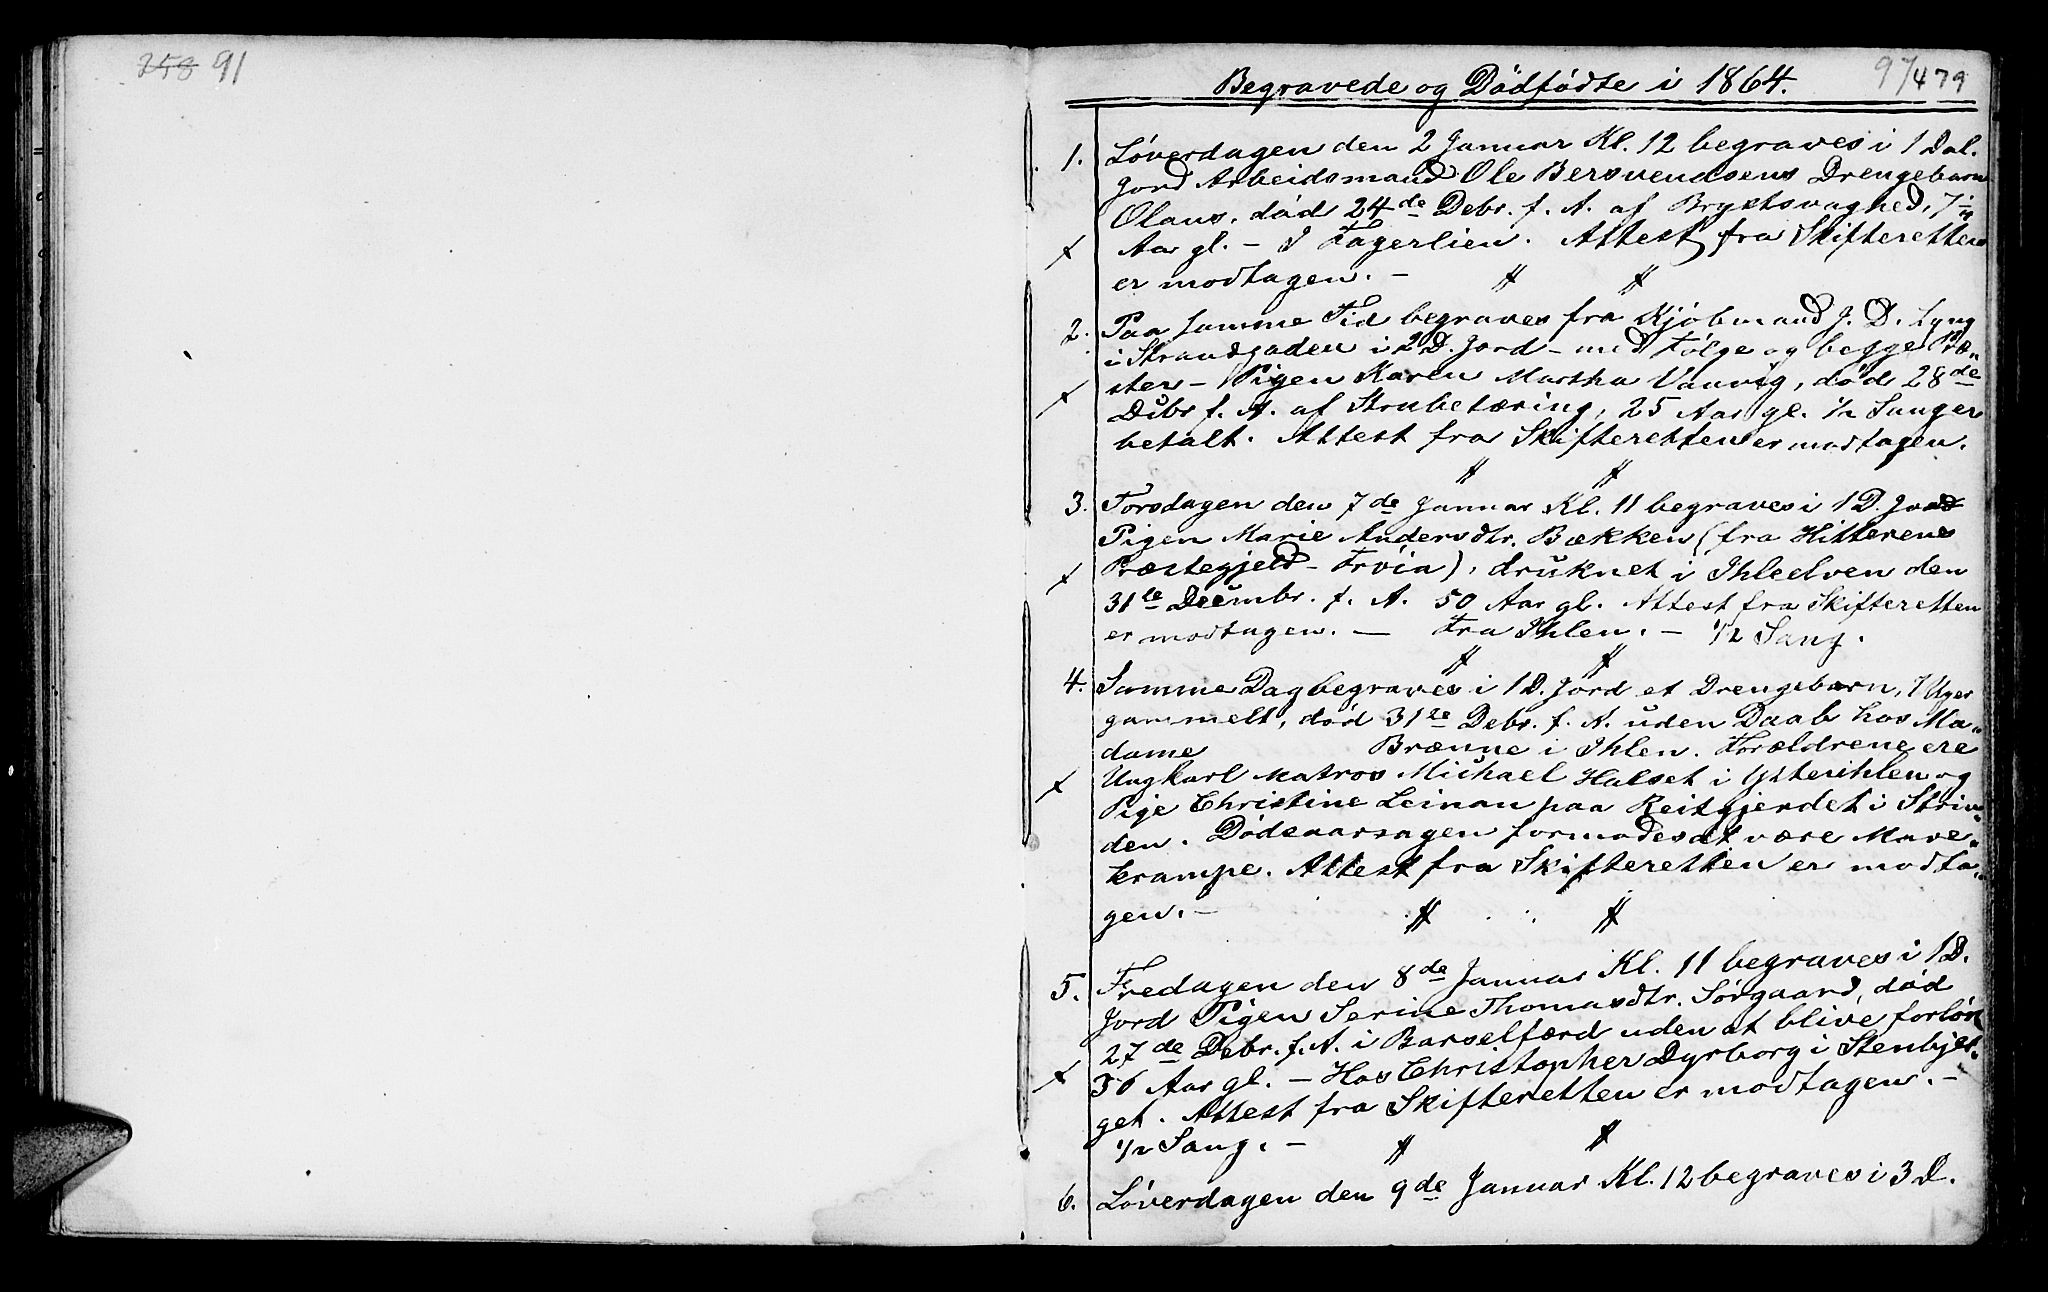 258 91
97/479
Begravede og Dödfödte i 1864.
1. Löverdagen den 2 Januar Kl. 12 begraves i 1 Dal.
Jord Arbeidsmand Ole Bersvendsens Drengebarn
Olaus, död 24de Debr. f. A. af Brystsvaghed, 7
Aar gl. - I Fagerlien. Attest fra Skifteretten
er modtagen. -
2. Paa samme Tid begraves fra Kjöbmand J. D. Lyng
i Strandgaden i 2 D. Jord - med Fölge og begge Præ-
ster - Pigen Karen Martha Vanvig, död 28de
Debr f. A. af Strubetæring, 25 Aar gl. 1/2 Sanger
betalt. Attest fra Skifteretten er modtagen.
3. Torsdagen den 7de Januar Kl. 11 begraves i 1 D. Jord
Pigen Marie Andersdtr. Bækken (fra Hitterens
Præstegjeld - Fröia), druknet i Ihleelven den
31te Decembr. f. A. 50 Aar gl. Attest fra Skifteretten
er modtagen. - Fra Ihlen. - 1/2 Sang.
4. Samme Dag begraves i 1 D. Jord et Drengebarn, 7 Uger
gammelt, död 31te Debr. f. A. uden Daab hos Ma-
dame Brænne i Ihlen. Forældrene ere
Ungkarl Matros Michael Halset i Ytterihlen og
Pige Christine Leinan paa Reitgjerdet i Strin-
den. Dödsaarsagen formodes at være Mave-
krampe. Attest fra Skifteretten er modta-
gen. -
5. Fredagen den 8de Januar Kl. 11 begraves i 1 D.
Jord Pigen Serine Thomasdtr. Sörgaard, död
27de Debr. f. A. i Barselfærd uden at blive forlöst
36 Aar gl. - Hos Christopher Dyrborg i Stenbjer-
get. Attest fra Skifteretten er modtagen. -
1/2 Sang. -
6. Löverdagen den 9de Januar Kl. 12 begraves i 3 D.